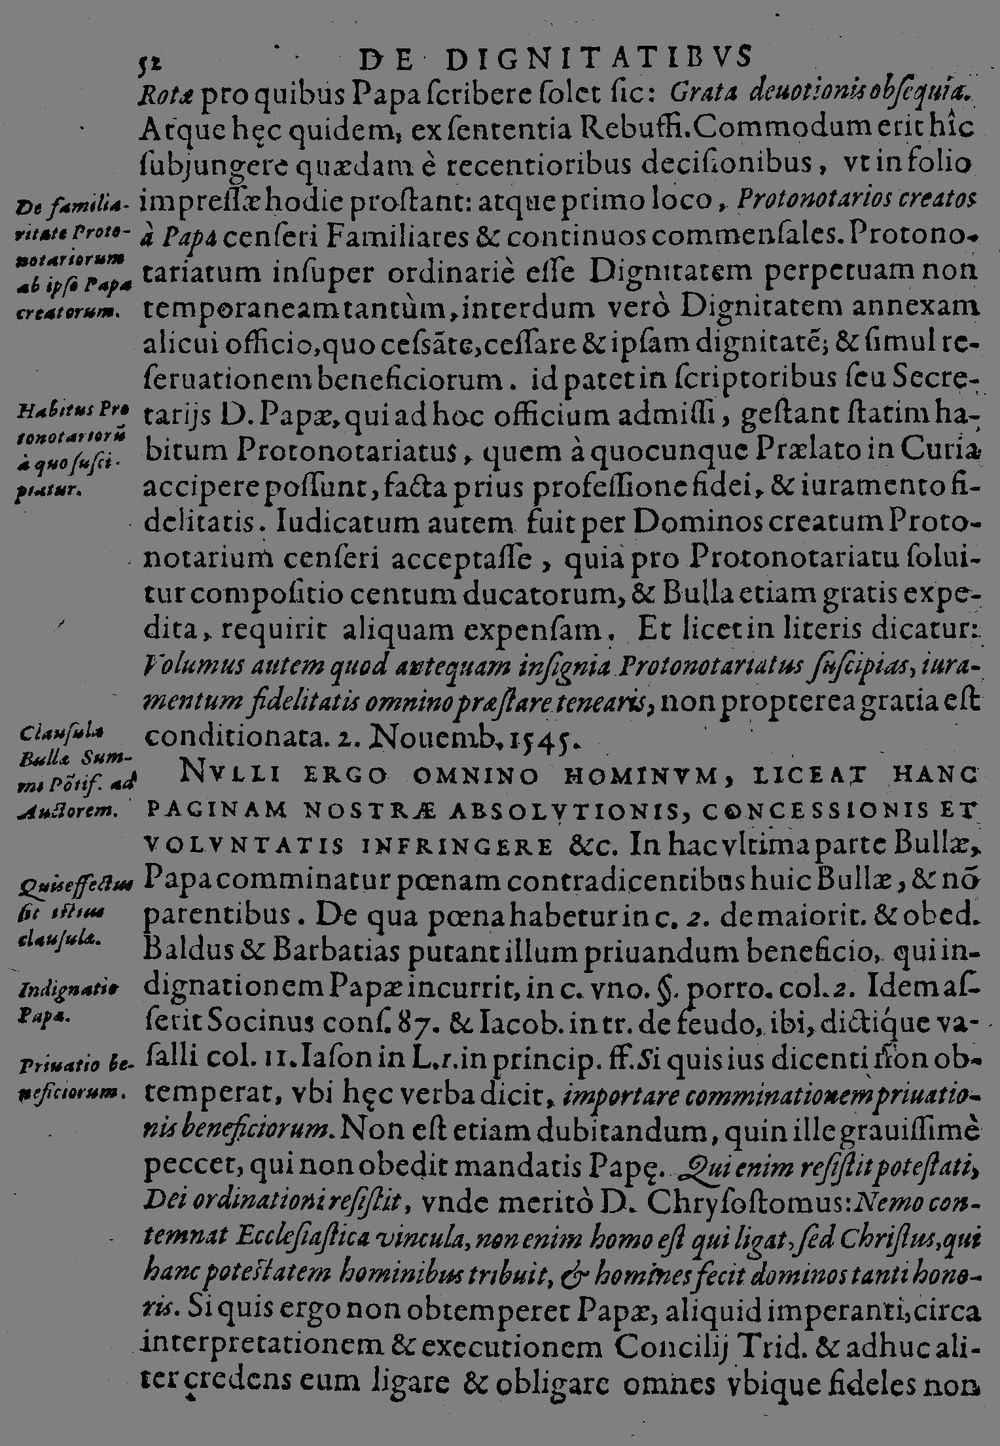 52 DE DIGNITATIBVS
Rotæ pro quibus Papa ſcribere ſolet ſic: Grata deuotionis obſequia.
Atque hęc quidem, ex ſententia Rebuffi. Commodum erit hîc
ſubjungere quædam è recentioribus deciſionibus, vt in folio
impreſſæ hodie proſtant: atque primo loco, Protonotarios creatos
à Papa cenſeri Familiares & continuos commenſales. Protono-
tariatum inſuper ordinariè eſſe Dignitatem perpetuam non
temporaneam tantùm, interdum verò Dignitatem annexam
alicui officio, quo ceſsãte, ceſſare & ipſam dignitatẽ; & ſimul re-
ſeruationem beneficiorum. id patet in ſcriptoribus ſeu Secre-
tarijs D. Papæ, qui ad hoc officium admiſſi, geſtant ſtatim ha-
bitum Protonotariatus, quem à quocunque Prælato in Curia
accipere poſſunt, facta prius profeſſione fidei, & iuramento fi-
delitatis. Iudicatum autem fuit per Dominos creatum Proto-
notarium cenſeri acceptaſſe, quia pro Protonotariatu ſolui-
tur compoſitio centum ducatorum, & Bulla etiam gratis expe-
dita, requirit aliquam expenſam. Et licet in literis dicatur:
Volumus autem quod antequam inſignia Protonotariatus ſuſcipias, iura-
mentum fidelitatis omnino præſtare tenearis, non propterea gratia eſt
conditionata. 2. Nouemb. 1545.
NVLLI ERGO OMNINO HOMINVM, LICEAT HANC
PAGINAM NOSTRÆ ABSOLVTIONIS, CONCESSIONIS ET
VOLVNTATIS INFRINGERE &c. In hac vltima parte Bullæ,
Papa comminatur pœnam contradicentibus huic Bullæ, & nõ
parentibus. De qua pœna habetur in c. 2. de maiorit. & obed.
Baldus & Barbatias putant illum priuandum beneficio, qui in-
dignationem Papæ incurrit, in c. vno. §. porro. col. 2. Idem aſ-
ſerit Socinus conſ. 87. & Iacob. in tr. de feudo, ibi, dictíque va-
ſalli col. 11. Iaſon in L. 1. in princip. ff. Si quis ius dicenti non ob-
temperat, vbi hęc verba dicit, importare comminationem priuatio-
nis beneficiorum. Non eſt etiam dubitandum, quin ille grauiſſimè
peccet, qui non obedit mandatis Papę. Qui enim reſiſtit poteſtati,
Dei ordinationi reſiſtit, vnde meritò D. Chryſoſtomus: Nemo con-
temnat Eccleſiaſtica vincula, non enim homo eſt qui ligat, ſed Chriſtus, qui
hanc poteſtatem hominibus tribuit, & homines fecit dominos tanti hono-
ris. Si quis ergo non obtemperet Papæ, aliquid imperanti, circa
interpretationem & executionem Concilij Trid. & adhuc ali-
ter credens eum ligare & obligare omnes vbique fideles non
De familia-
ritate Proto-
notariorum
ab ipſo Papa
creatorum.
Habitus Pro
tonotariorũ
à quo ſuſci-
piatur.
Clauſula
Bullæ Sum-
mi Põtif. ad
Auctorem.
Quis effectus
ſit iſtius
clauſulæ.
Indignatio
Papæ.
Priuatio be-
neficiorum.